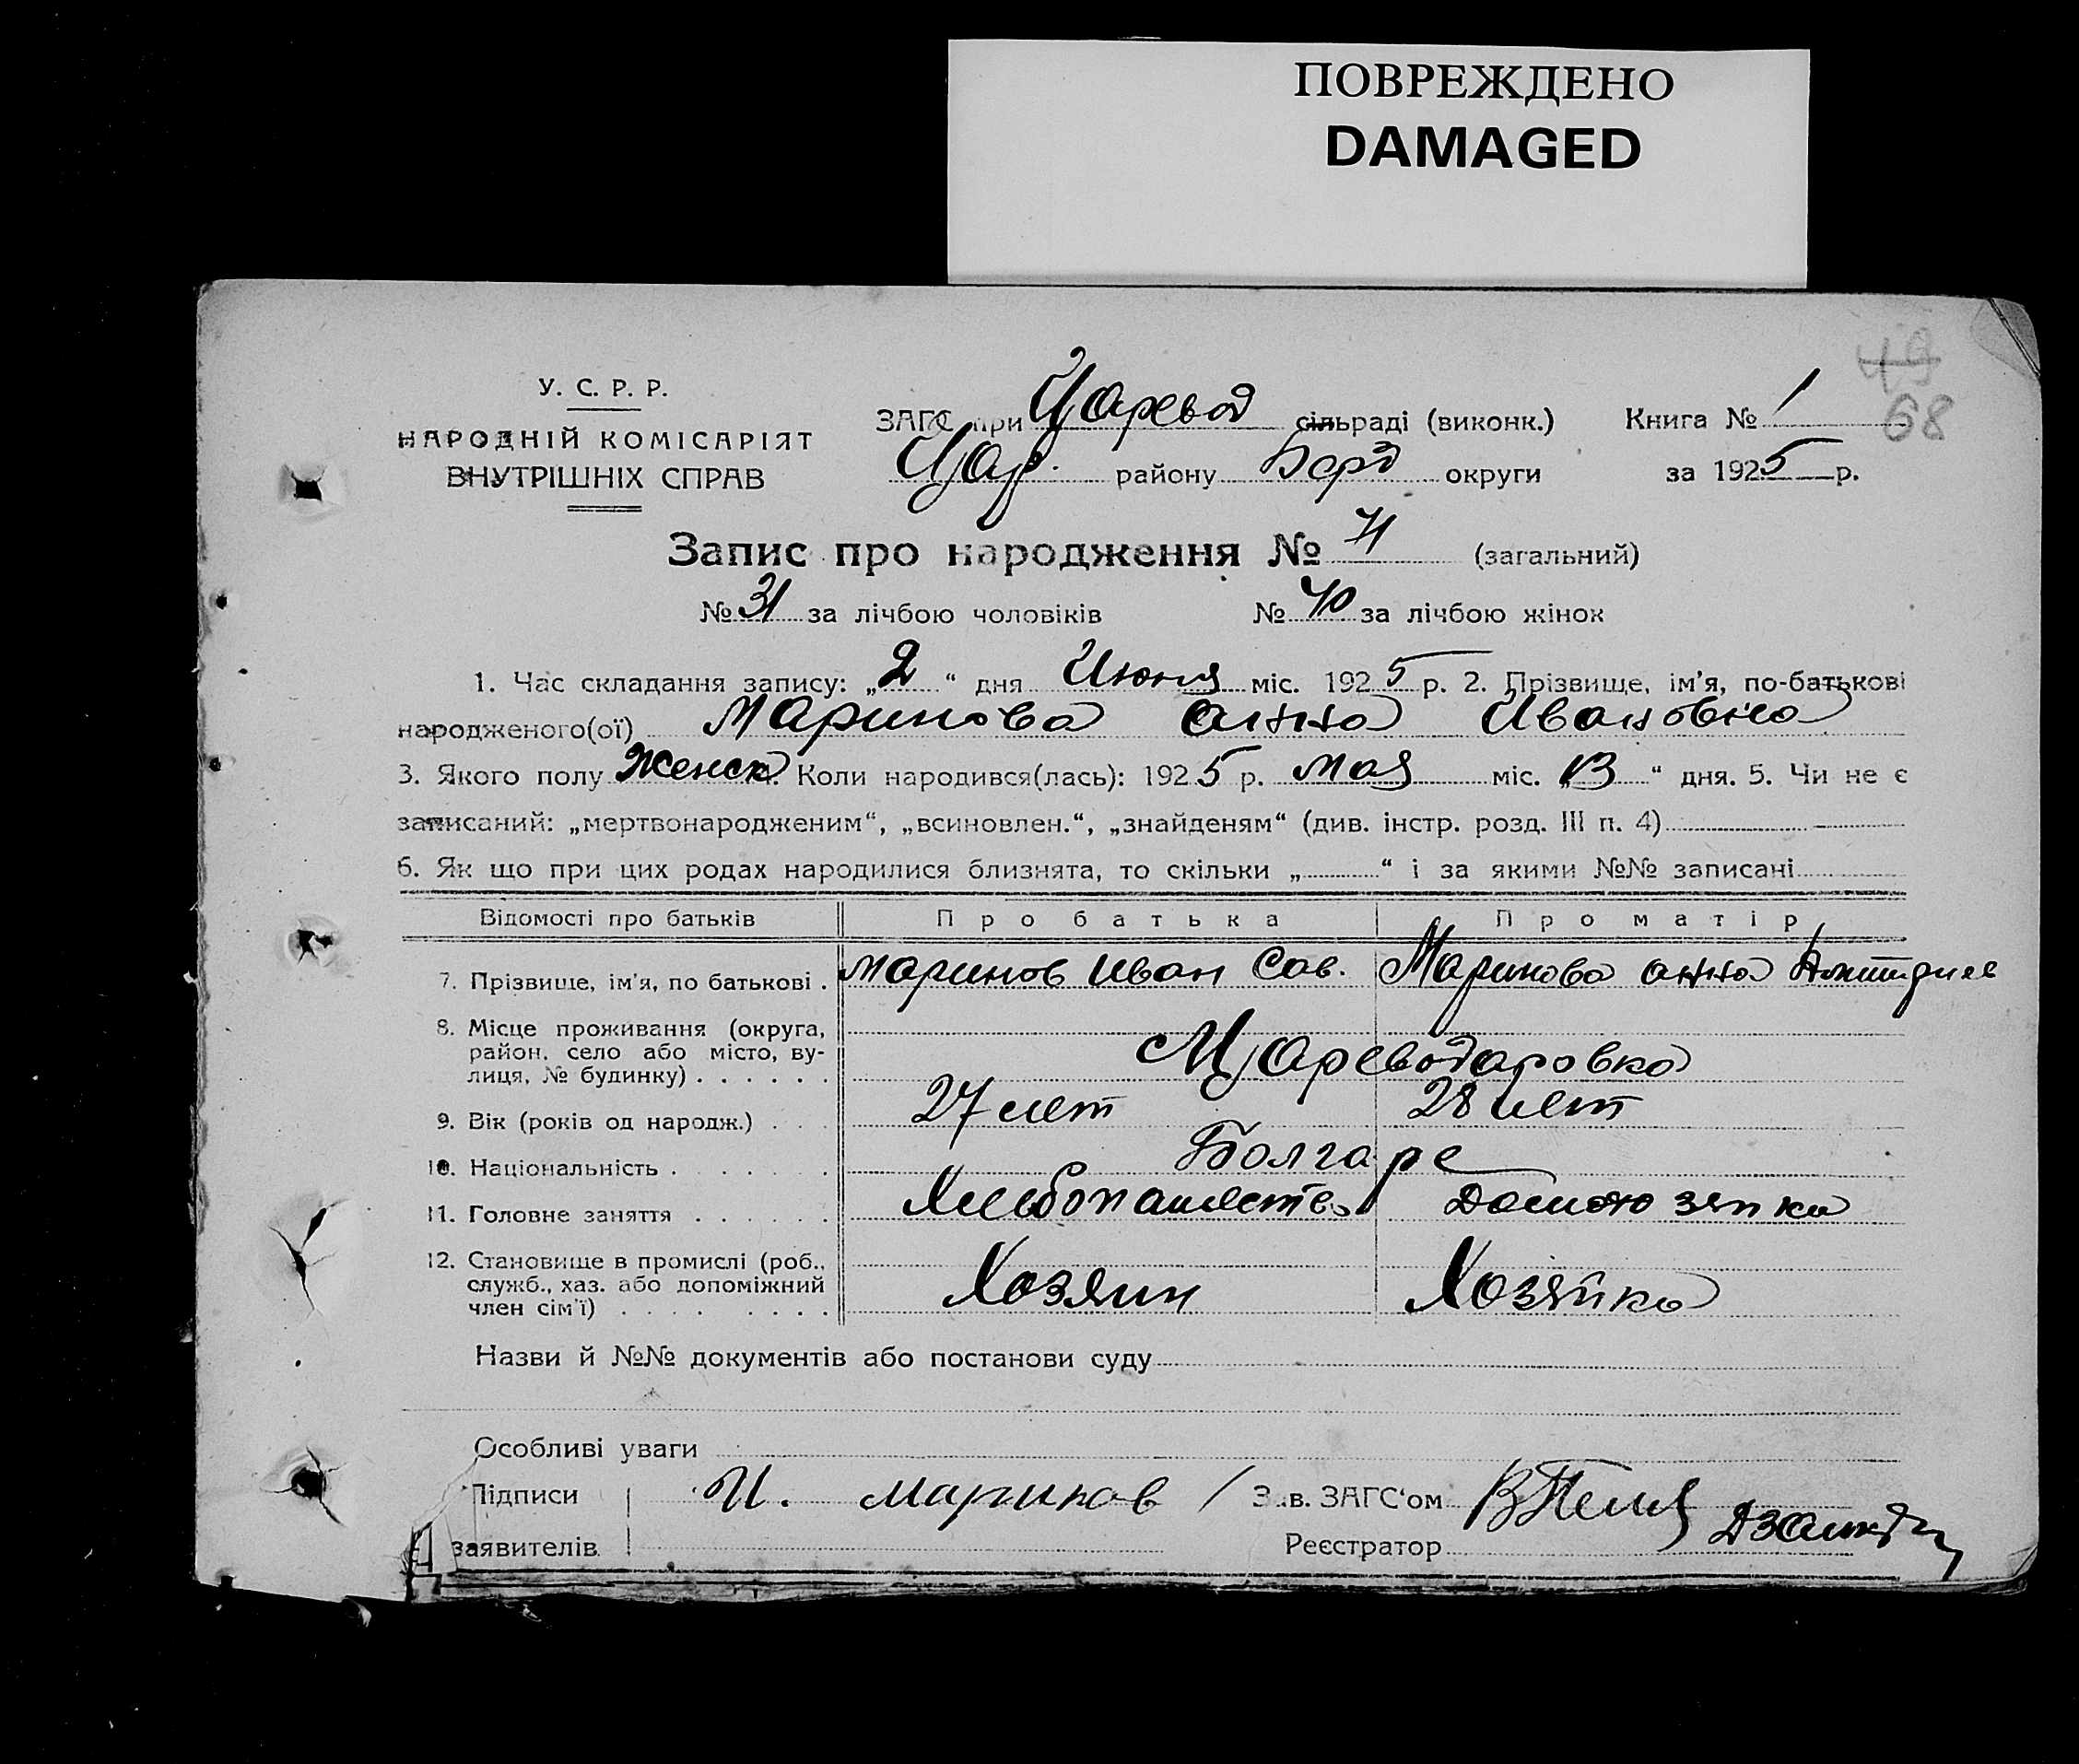 ПОВРЕЖДЕНО
DAMAGED
49
68
У. С. Р. Р.
НАРОДНІЙ КОМІСАРІЯТ
ВНУТРІШНІХ СПРАВ
ЗАГС при Царевод сільраді (виконк.) Книга № 1
Цар. району Берд округи за 1925 р.
Запис про народження № 71 (загальний)
№ 31 за лічбою чоловіків № 40 за лічбою жінок
1. Час складання запису: „2“ дня Июня міс. 1925 р. 2. Прізвище, ім’я, по-батькові
народженого(ої) Маринова Анна Ивановна
3. Якого полу Женск. Коли народився(лась): 1925 р. Мая міс. „13“ дня. 5. Чи не є
записаний: „мертвонародженим“, „всиновлен.“, „знайденям“ (див. інстр. розд. III п. 4)
6. Як що при цих родах народилися близнята, то скільки „ “ і за якими №№ записані
Відомості про батьків Про батька Про матір
7. Прізвище, ім’я, по батькові . Маринов Иван Сав. Маринова Анна
8. Місце проживання (округа,
район, село або місто, ву-
лиця, № будинку) . . . . . . Цареводаровка
9. Вік (років од народж.) . . . 27 лет 28 лет
10. Національність . . . . . Болгаре
11. Головне заняття . . . . . . Хлебопашество
12. Становище в промислі (роб.,
служб., хаз. або допоміжний
член сім’ї) . . . . . . . . Хозяин Хозяйка
Назви й №№ документів або постанови суду
Особливі уваги
Підписи И. Маринов / Зав. ЗАГС‘ом
заявителів Реєстратор